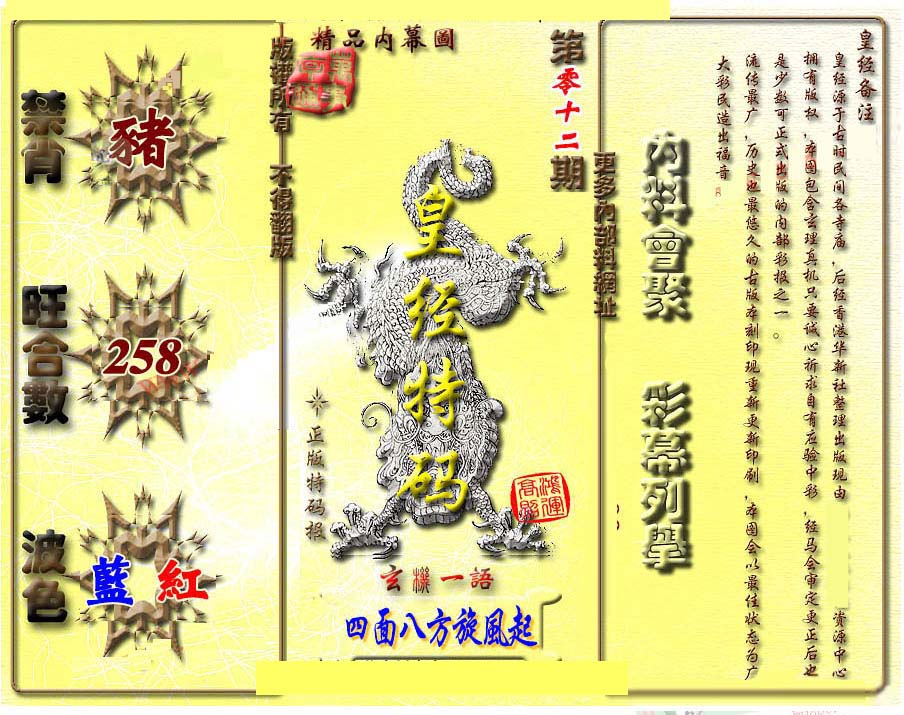 精品内幕圖
版權所有 不得翻版
第零十二期
更多內部料網址
禁肖
豬
旺合數
258
波色
藍 紅
皇经特码
正版特码报
鴻運高照
玄機一語
四面八方旋風起
內料會聚 彩幕列舉
皇经备注
皇经源于古时民间各寺庙，后经香港华新社整理出版现由 资源中心
拥有版权，本图包含玄理真机只要诚心祈求自有应验中彩，经马会审定更正后也
是少数可正式出版的内部彩报之一。
流传最广，历史也最悠久的古版本刻印现重新更新印刷，本图会以最佳状态为广
大彩民造出福音